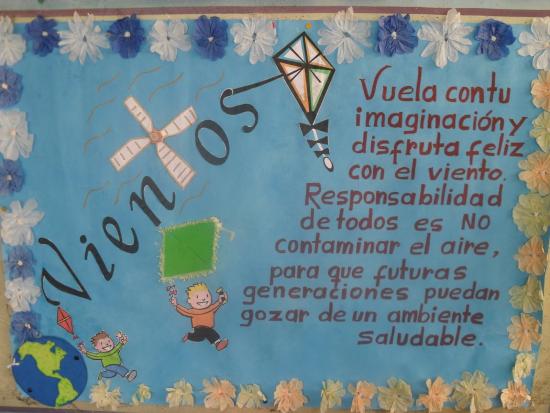 Vientos
Vuela contu
imaginación y
disfruta feliz
con el viento.
Responsabilidad
de todos es NO
contaminar el aire,
para que futuras
generaciones puedan
gozar de un ambiente
saludable.